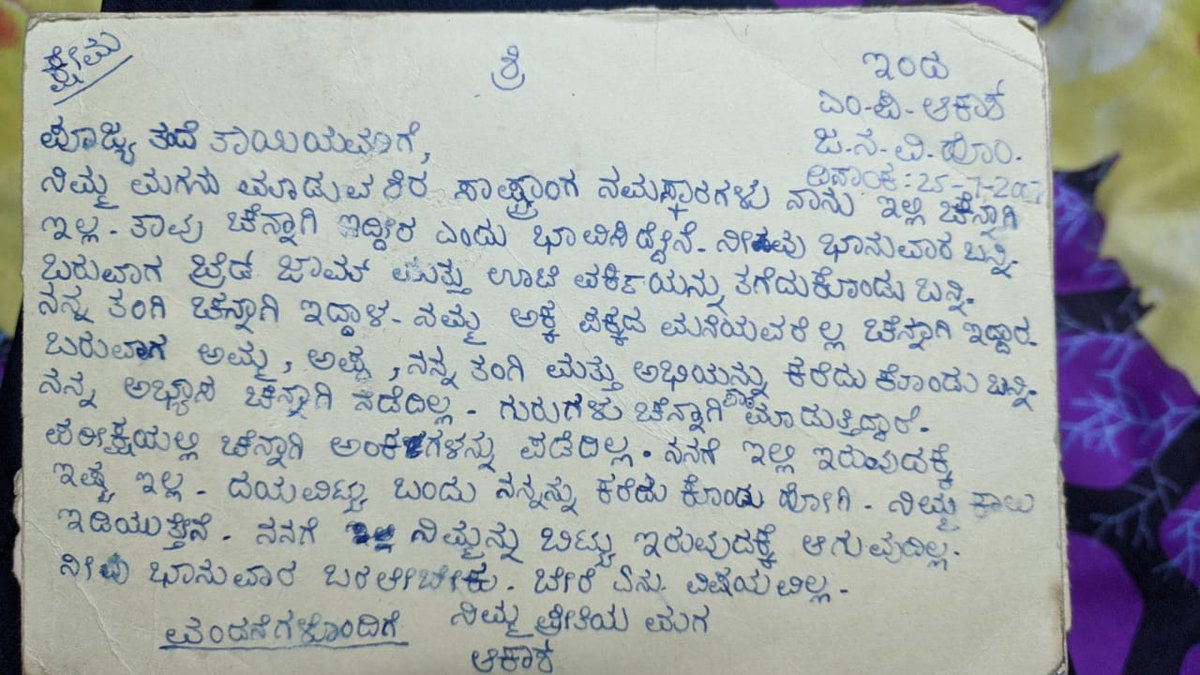 ಕ್ಷೇಮ ಶ್ರಿ ಇಂದ
ಎಂ-ಪಿ-ಆಕಾಶ
ಪೂಜ್ಯ ತಂದೆ ತಾಯಿಯವರಿಗೆ, ಜ.ನ.ವಿ.ಹೊಂ.
ದಿನಾಂಕ:25-7-2007
ನಿಮ್ಮ ಮಗನು ಮಾಡುವ ಶಿರ ಸಾಷ್ಟಾಂಗ ನಮಸ್ಕಾರಗಳು ನಾನು ಇಲ್ಲಿ ಚೆನ್ನಾಗಿ
ಇಲ್ಲ. ತಾವು ಚೆನ್ನಾಗಿ ಇದ್ದೀರ ಎಂದು ಭಾವಿಸಿದ್ದೇನೆ. ನೀವು ಭಾನುವಾರ ಬನ್ನಿ.
ಬರುವಾಗ ಬ್ರೆಡ ಜಾಮ್ ಮತ್ತು ಊಟಿ ವರ್ಕಿಯನ್ನು ತಗೆದುಕೊಂಡು ಬನ್ನಿ.
ನನ್ನ ತಂಗಿ ಚೆನ್ನಾಗಿ ಇದ್ದಾಳ. ನಮ್ಮ ಅಕ್ಕ ಪಕ್ಕದ ಮನೆಯವರೆಲ್ಲ ಚೆನ್ನಾಗಿ ಇದ್ದಾರ.
ಬರುವಾಗ ಅಮ್ಮ, ಅಪ್ಪ, ನನ್ನ ತಂಗಿ ಮತ್ತು ಅಭಿಯನ್ನು ಕರೆದು ಕೊಂಡು ಬನ್ನಿ.
ನನ್ನ ಅಭ್ಯಾಸ ಚೆನ್ನಾಗಿ ನಡೆದಿಲ್ಲ. ಗುರುಗಳು ಚೆನ್ನಾಗಿ ಮಾಡುತ್ತಿದ್ದಾರೆ.
ಪರೀಕ್ಷೆಯಲ್ಲಿ ಚೆನ್ನಾಗಿ ಅಂಕಗಳನ್ನು ಪಡೆದಿಲ್ಲ. ನನಗೆ ಇಲ್ಲಿ ಇರುವುದಕ್ಕೆ
ಇಷ್ಟ ಇಲ್ಲ. ದಯವಿಟ್ಟು ಬಂದು ನನ್ನನ್ನು ಕರೆದು ಕೊಂಡು ಹೋಗಿ. ನಿಮ್ಮ ಕಾಲು
ಇಡಿಯುತ್ತೇನೆ. ನನಗೆ ನಿಮ್ಮನ್ನು ಬಿಟ್ಟು ಇರುವುದಕ್ಕೆ ಆಗುವುದಿಲ್ಲ.
ನೀವು ಭಾನುವಾರ ಬರಲೇಬೇಕು. ಬೇರೆ ಏನು ವಿಷಯವಿಲ್ಲ.
ವಂದನೆಗಳೊಂದಿಗೆ ನಿಮ್ಮ ಪ್ರೀತಿಯ ಮಗ
ಆಕಾಶ